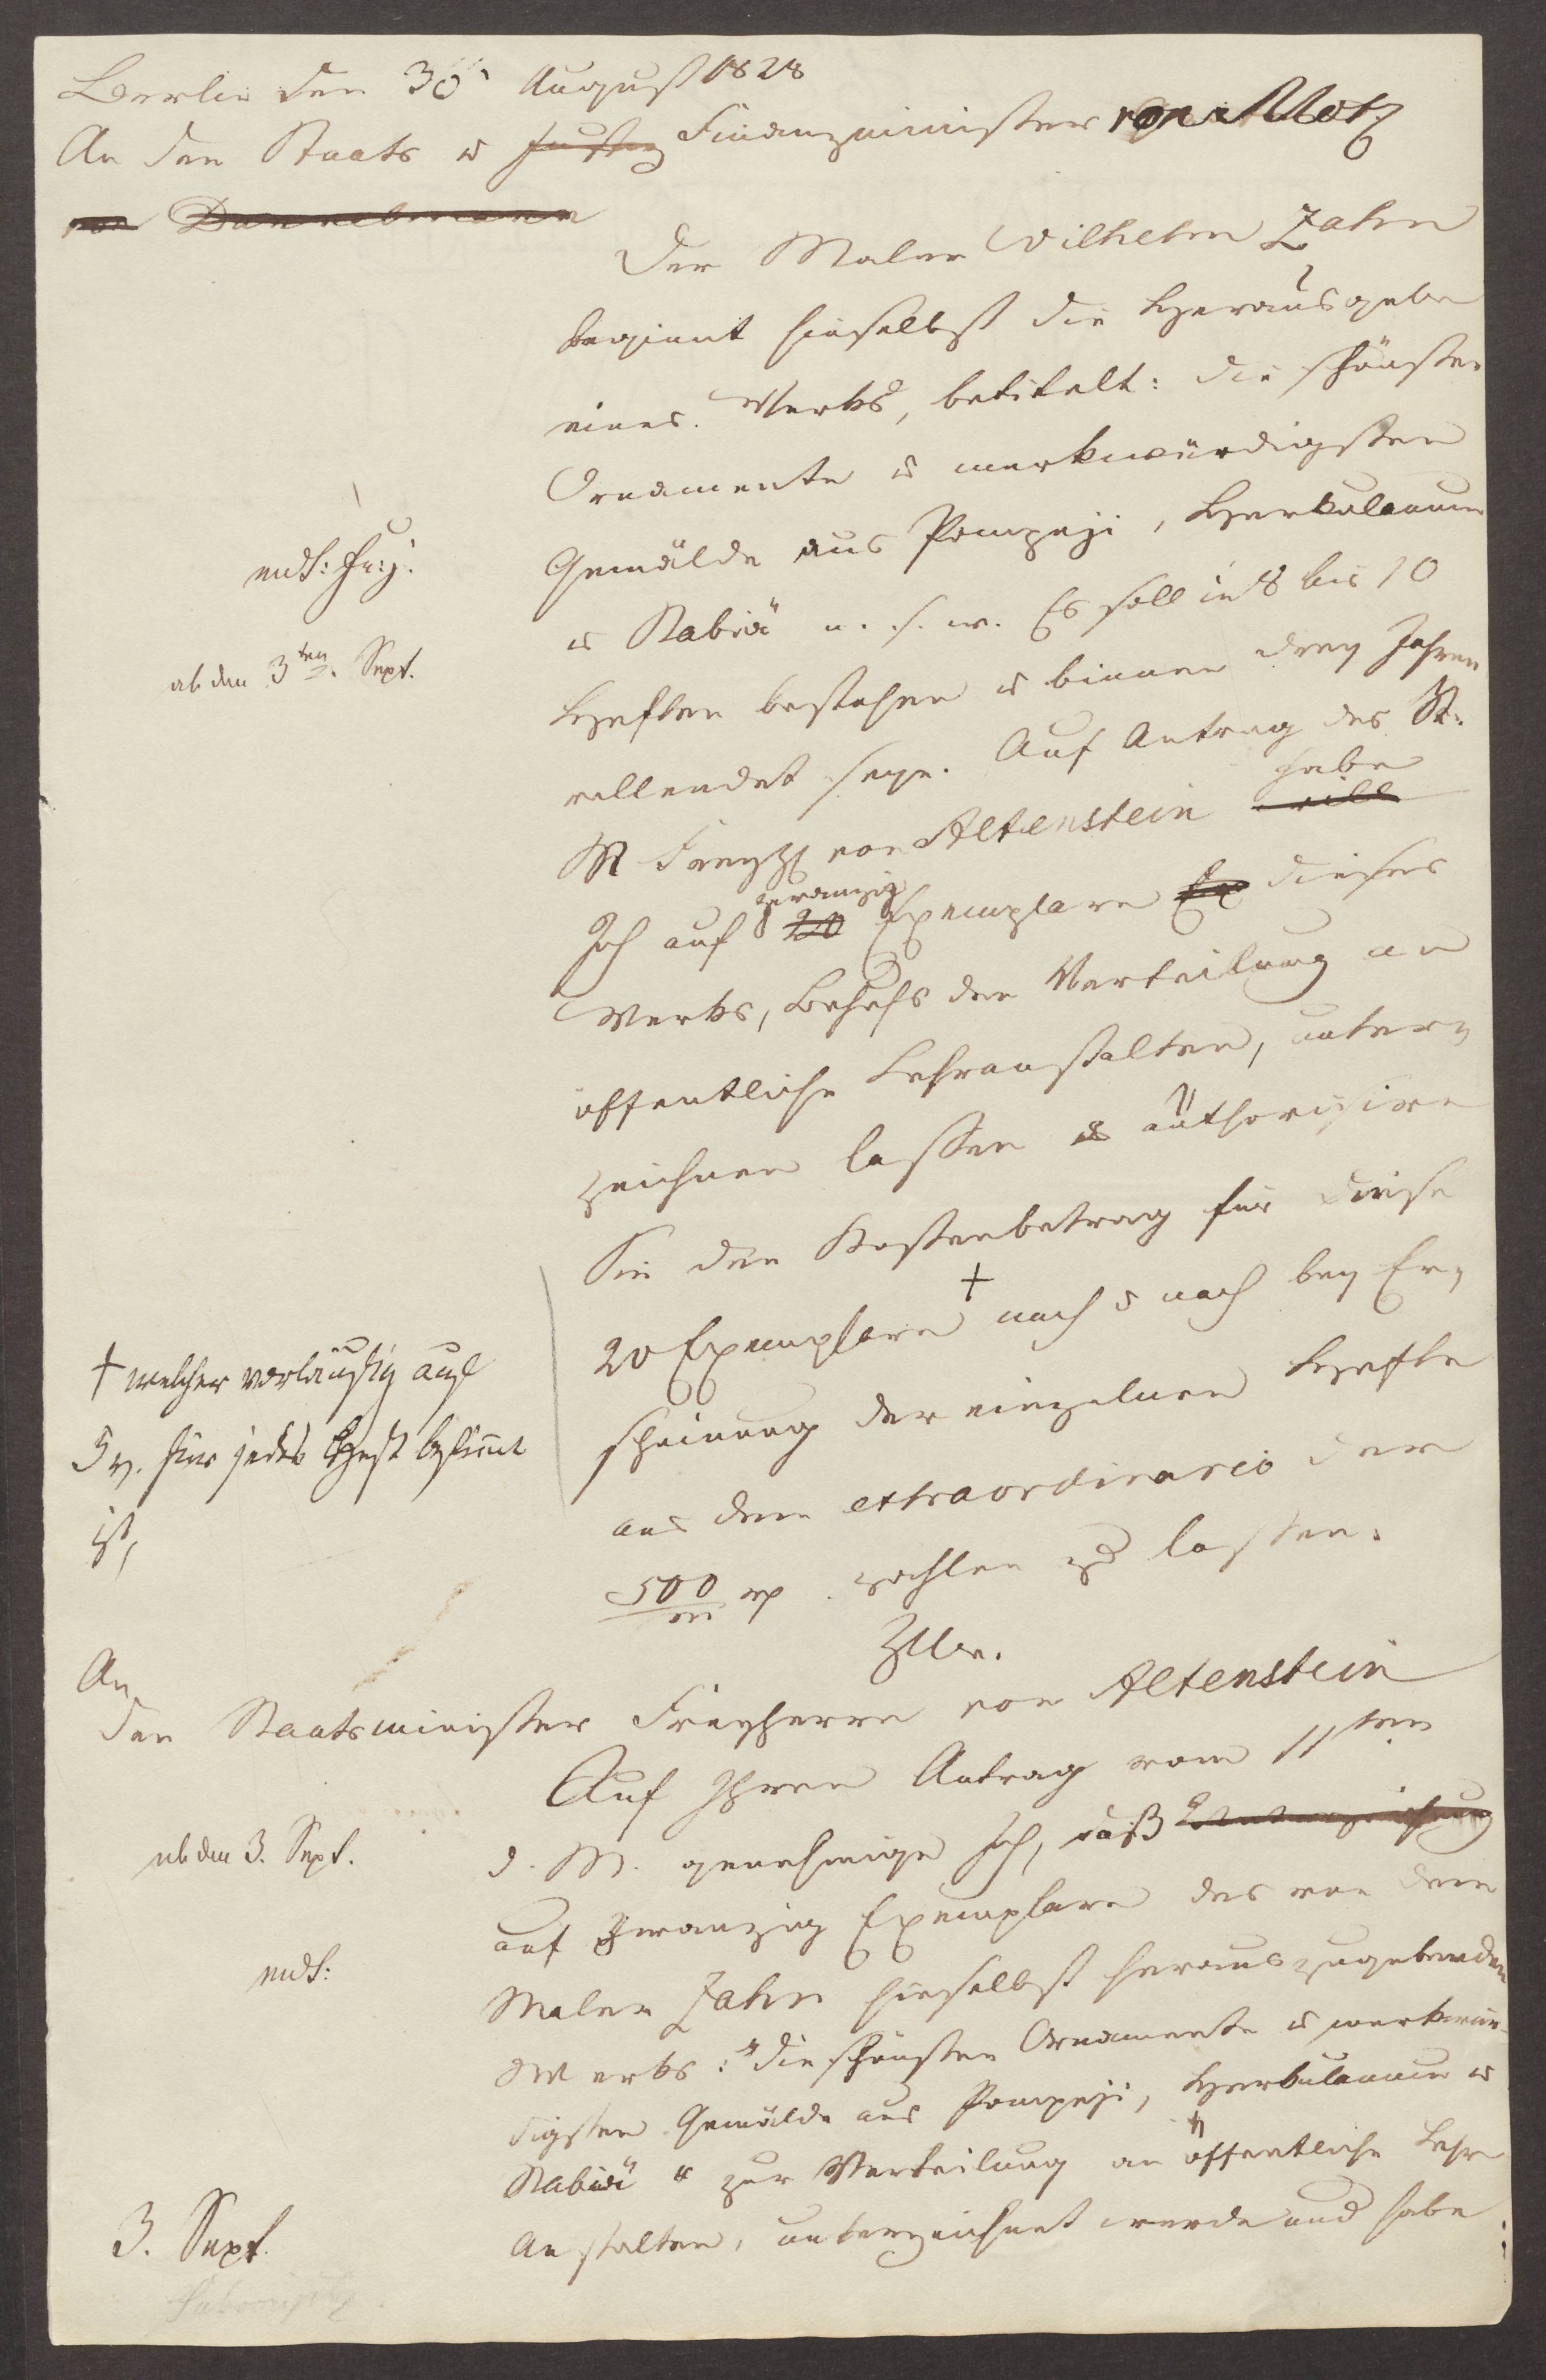 Berlin den 30 August 1828
An den Staats u Justiz Finanzminister von Motz
von Danckelmann
Der Maler Wilhelm Zahn
beginnt hieselbst die Herausgabe
eines Werks, betitelt: die schönsten
Ornamente u merkwürdigsten
Gemälde aus Pompeji, Herkulanum
u Stabiä u. s. w. Es soll in 8 bis 10
Heften bestehen u binnen drey Jahren
vollendet seyn. Auf Antrag des St.
M Freyh von Altenstein will habe
Ich auf 20 zwanzig Exemplare Ex dieses
Werks, Behufs der Verteilung an
öffentliche Lehranstalten, unter=
zeichnen lassen u authorisire
Sie den Kostenbetrag für diese
20 Exemplare + nach u nach bey Er=
scheinung der einzelnen Hefte
aus dem extraordinario der
500/m rp zahlen zu lassen.
mdt:
ab den 3ten Sept.
+ welcher vorläufig auf
5 rp. für jedes Heft bestimmt
ist,
An
den Staatsminister Freyherrn von Altenstein
Auf Ihren Antrag vom 11ten
d. M. genehmige Ich, daß Unterzeichnung
auf zwanzig Exemplare des von dem
Maler Zahn hieselbst herauszugebenden
Werks: "die schönsten Ornamente u merkwür=
digsten Gemälde aus Pompeji, Herkulanum u
Stabiä" zur Verteilung an öffentliche Lehr
Anstalten, unterzeichnet werde und habe
ab den 3. Sept.
mdt:
3. Sept.